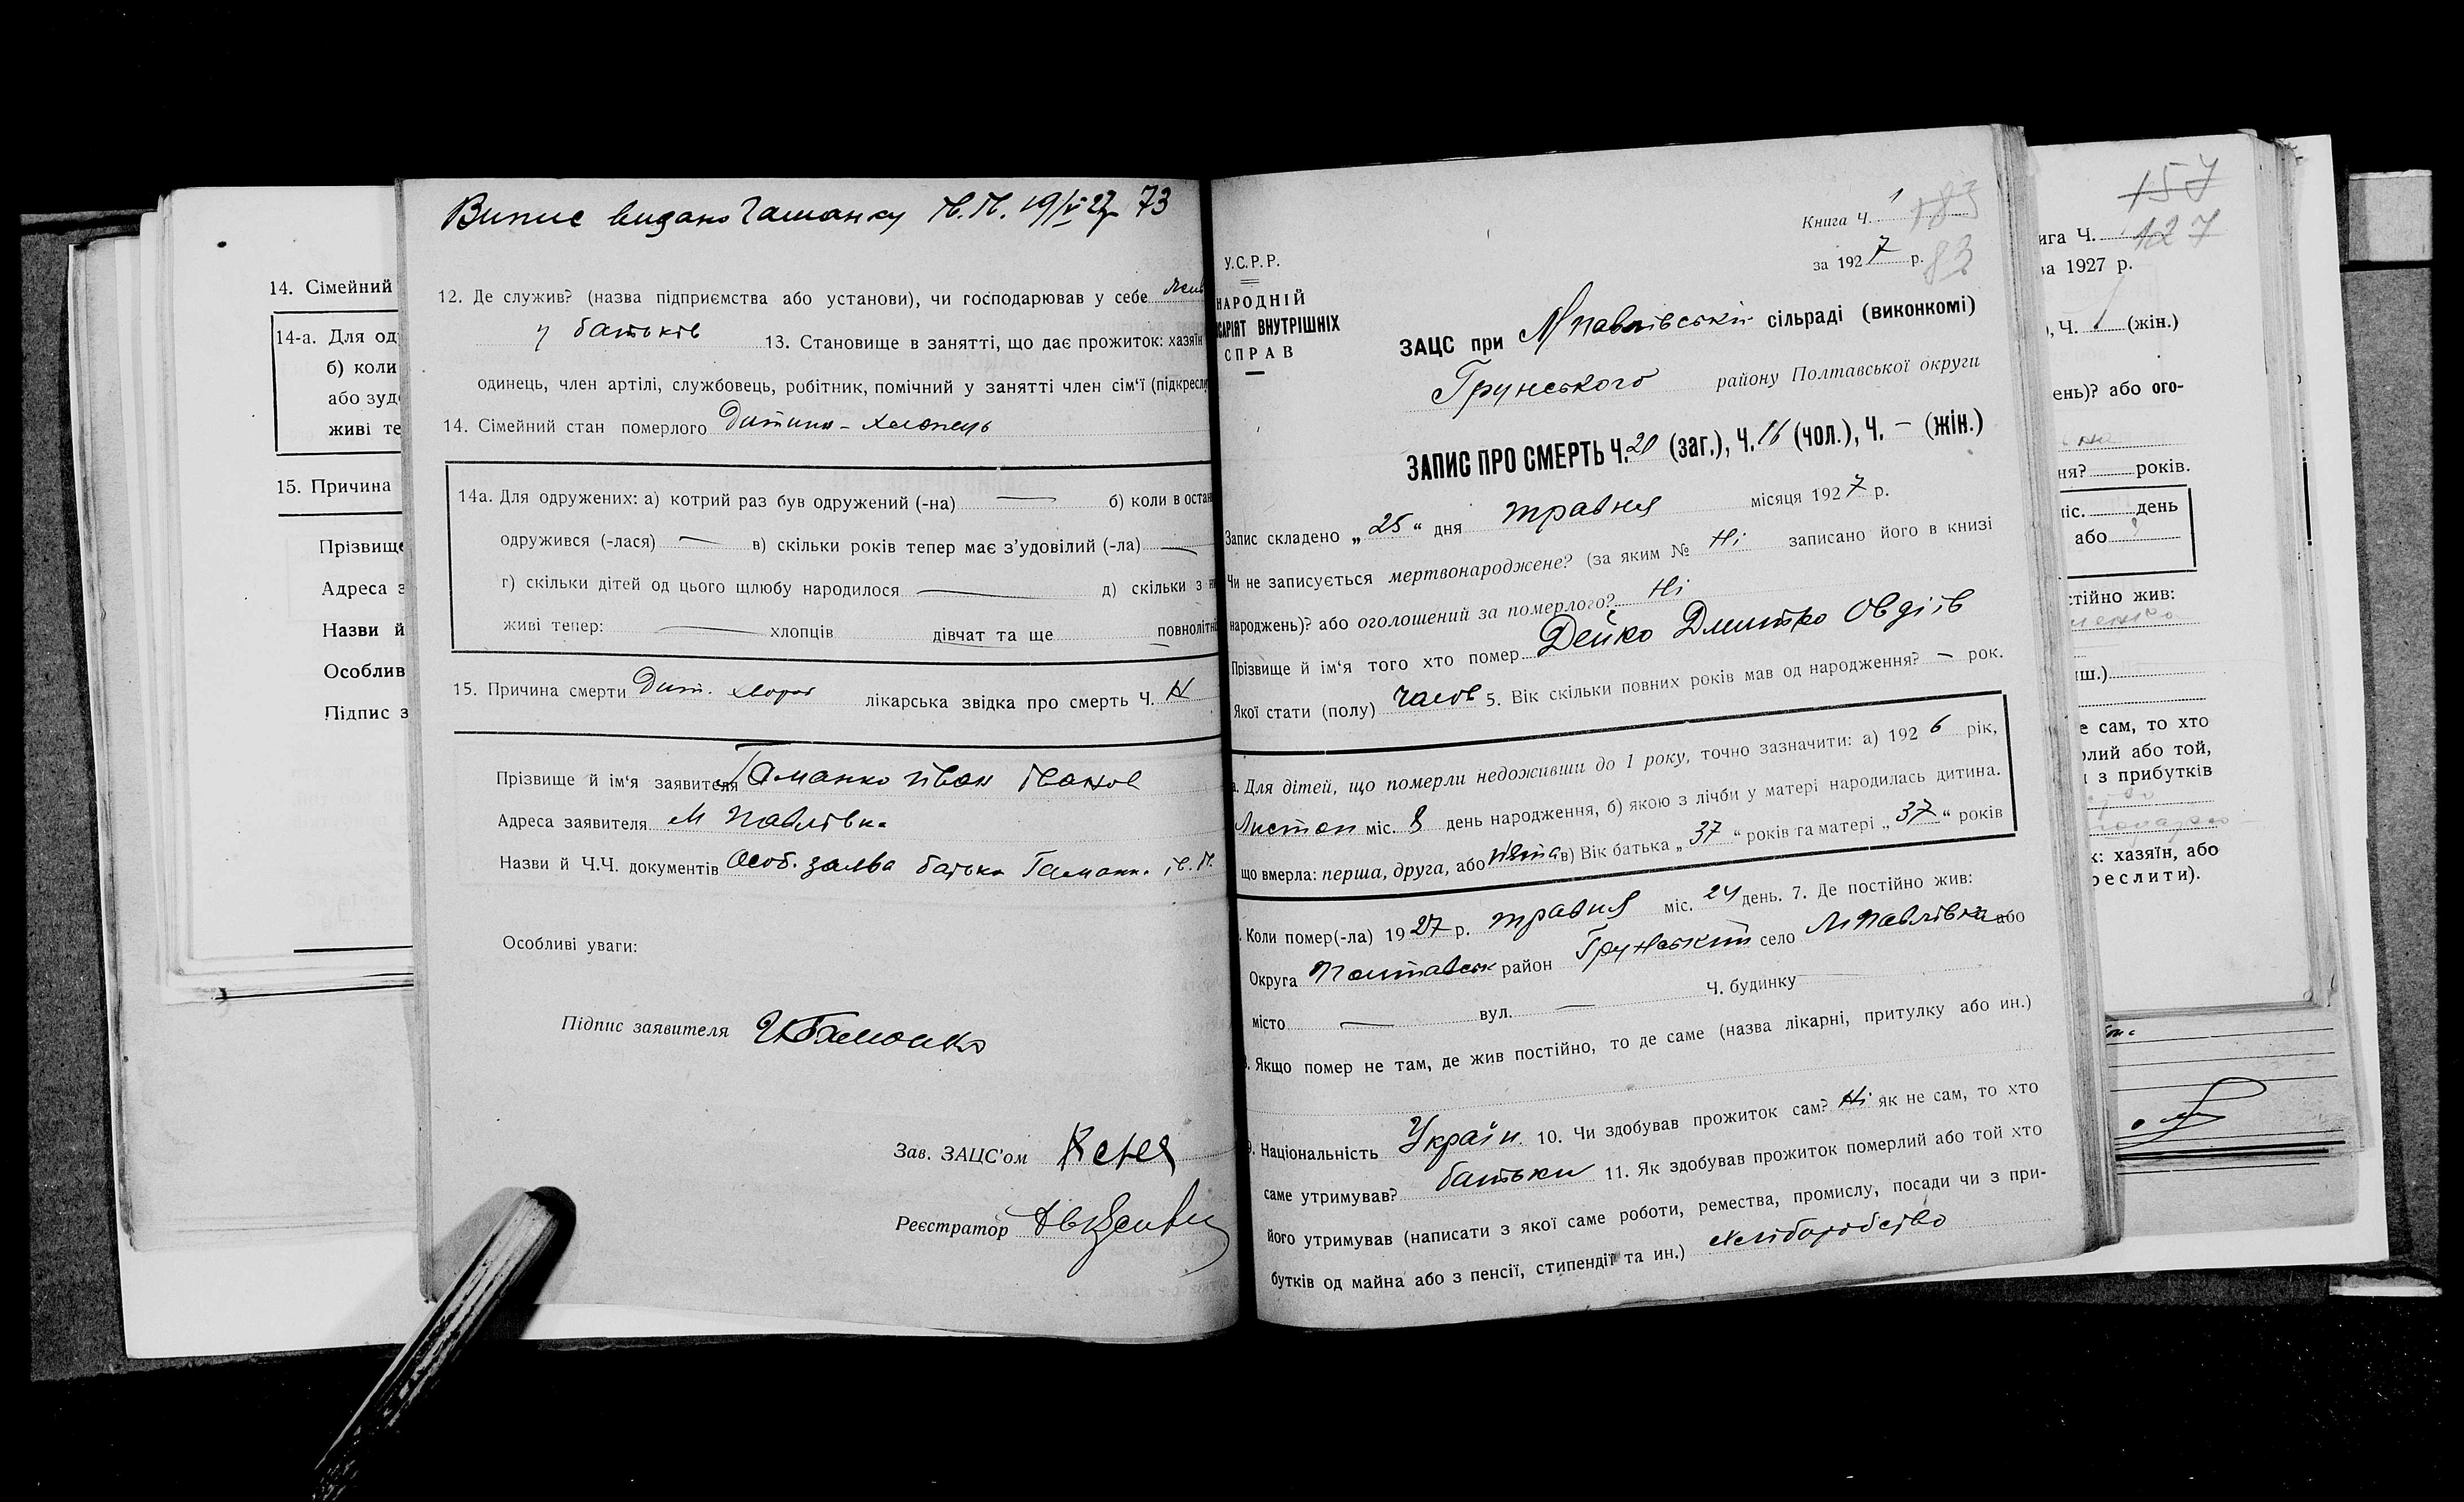 14. Сімейний
14-а. Для од
б) коли
або зуд
живі те
15. Причина
Прізвище
Адреса з
Назви й
Особлив
Підпис з
Випис видано Гашанку Ів. Ів. 19/VI 27р 73
12. Де служив? (назва підприємства або установи), чи господарював у себе жив
у батьків 13. Становище в занятті, що дає прожиток: хазяїн
одинець, член артілі, службовець, робітник, помічний у занятті член сім'ї (підкресли
14. Сімейний стан померлого Дитина - хлопець
14а. Для одружених: а) котрий раз був одружений (-на) — б) коли в остан
одружився (-лася) — в) скільки років тепер має з'удовілий (-ла) —
г) скільки дітей од цього щлюбу народилося — д) скільки з н
живі тепер: — хлопців дівчат та ще — повнолітн
15. Причина смерти Дит. хвороб лікарська звідка про смерть Ч. Н
Прізвище й ім'я заявителя Гаманко Іван Іванов
Адреса заявителя М Павлівка
Назви й Ч.Ч. документів Особ. заява батька Гаманк. Ів. Ів.
Особливі уваги:
Підпис заявителя Гаманко
Зав. ЗАЦС'ом
Реєстратор
Книга Ч. 1 183
за 1927 р. 83
У.С.Р.Р.
НАРОДНІЙ
САРІЯТ ВНУТРІШНІХ
СПРАВ
ЗАЦС при М Павлівській сільраді (виконкомі)
Грунського району Полтавської округи
ЗАПИС ПРО СМЕРТЬ Ч. 20 (заг.), Ч. 16 (чол.), Ч. – (жін.)
Запис складено „25" дня травня місяця 1927 р.
Чи не записується мертвонароджене? (за яким № Ні записано його в книзі
народжень)? або оголошений за померлого? Ні
Прізвище й ім'я того хто помер Дейко Дмитро Овдіїв
Якої стати (полу) чолов 5. Вік скільки повних років мав од народження? – рок.
а. Для дітей, що померли недоживши до 1 року, точно зазначити: а) 1926 рік,
Листоп міс. 8 день народження, б) якою з лічби у матері народилась дитина.
що вмерла: перша, друга, або п'ята в) Вік батька „37" років та матері „37" років
. Коли помер(-ла) 1927 р. травня міс. 24 день. 7. Де постійно жив:
Округа Полтавськ район Грунський село М Павлівка або
місто — вул. — Ч. будинку
. Якщо помер не там, де жив постійно, то де саме (назва лікарні, притулку або ин.)
9. Національність Україн. 10. Чи здобував прожиток сам? Ні як не сам, то хто
саме утримував? батьки 11. Як здобував прожиток померлий або той хто
його утримував (написати з якої саме роботи, ремества, промислу, посади чи з при-
бутків од майна або з пенсії, стипендії та ин.) хліборобство
157
ига Ч. 127
за 1927 р.
), Ч. (жін.)
ень)? або ого-
ня? років.
міс. день
або
стійно жив:
иш.)
е сам, то хто
рлий або той,
и з прибутків
к: хазяїн, або
реслити).